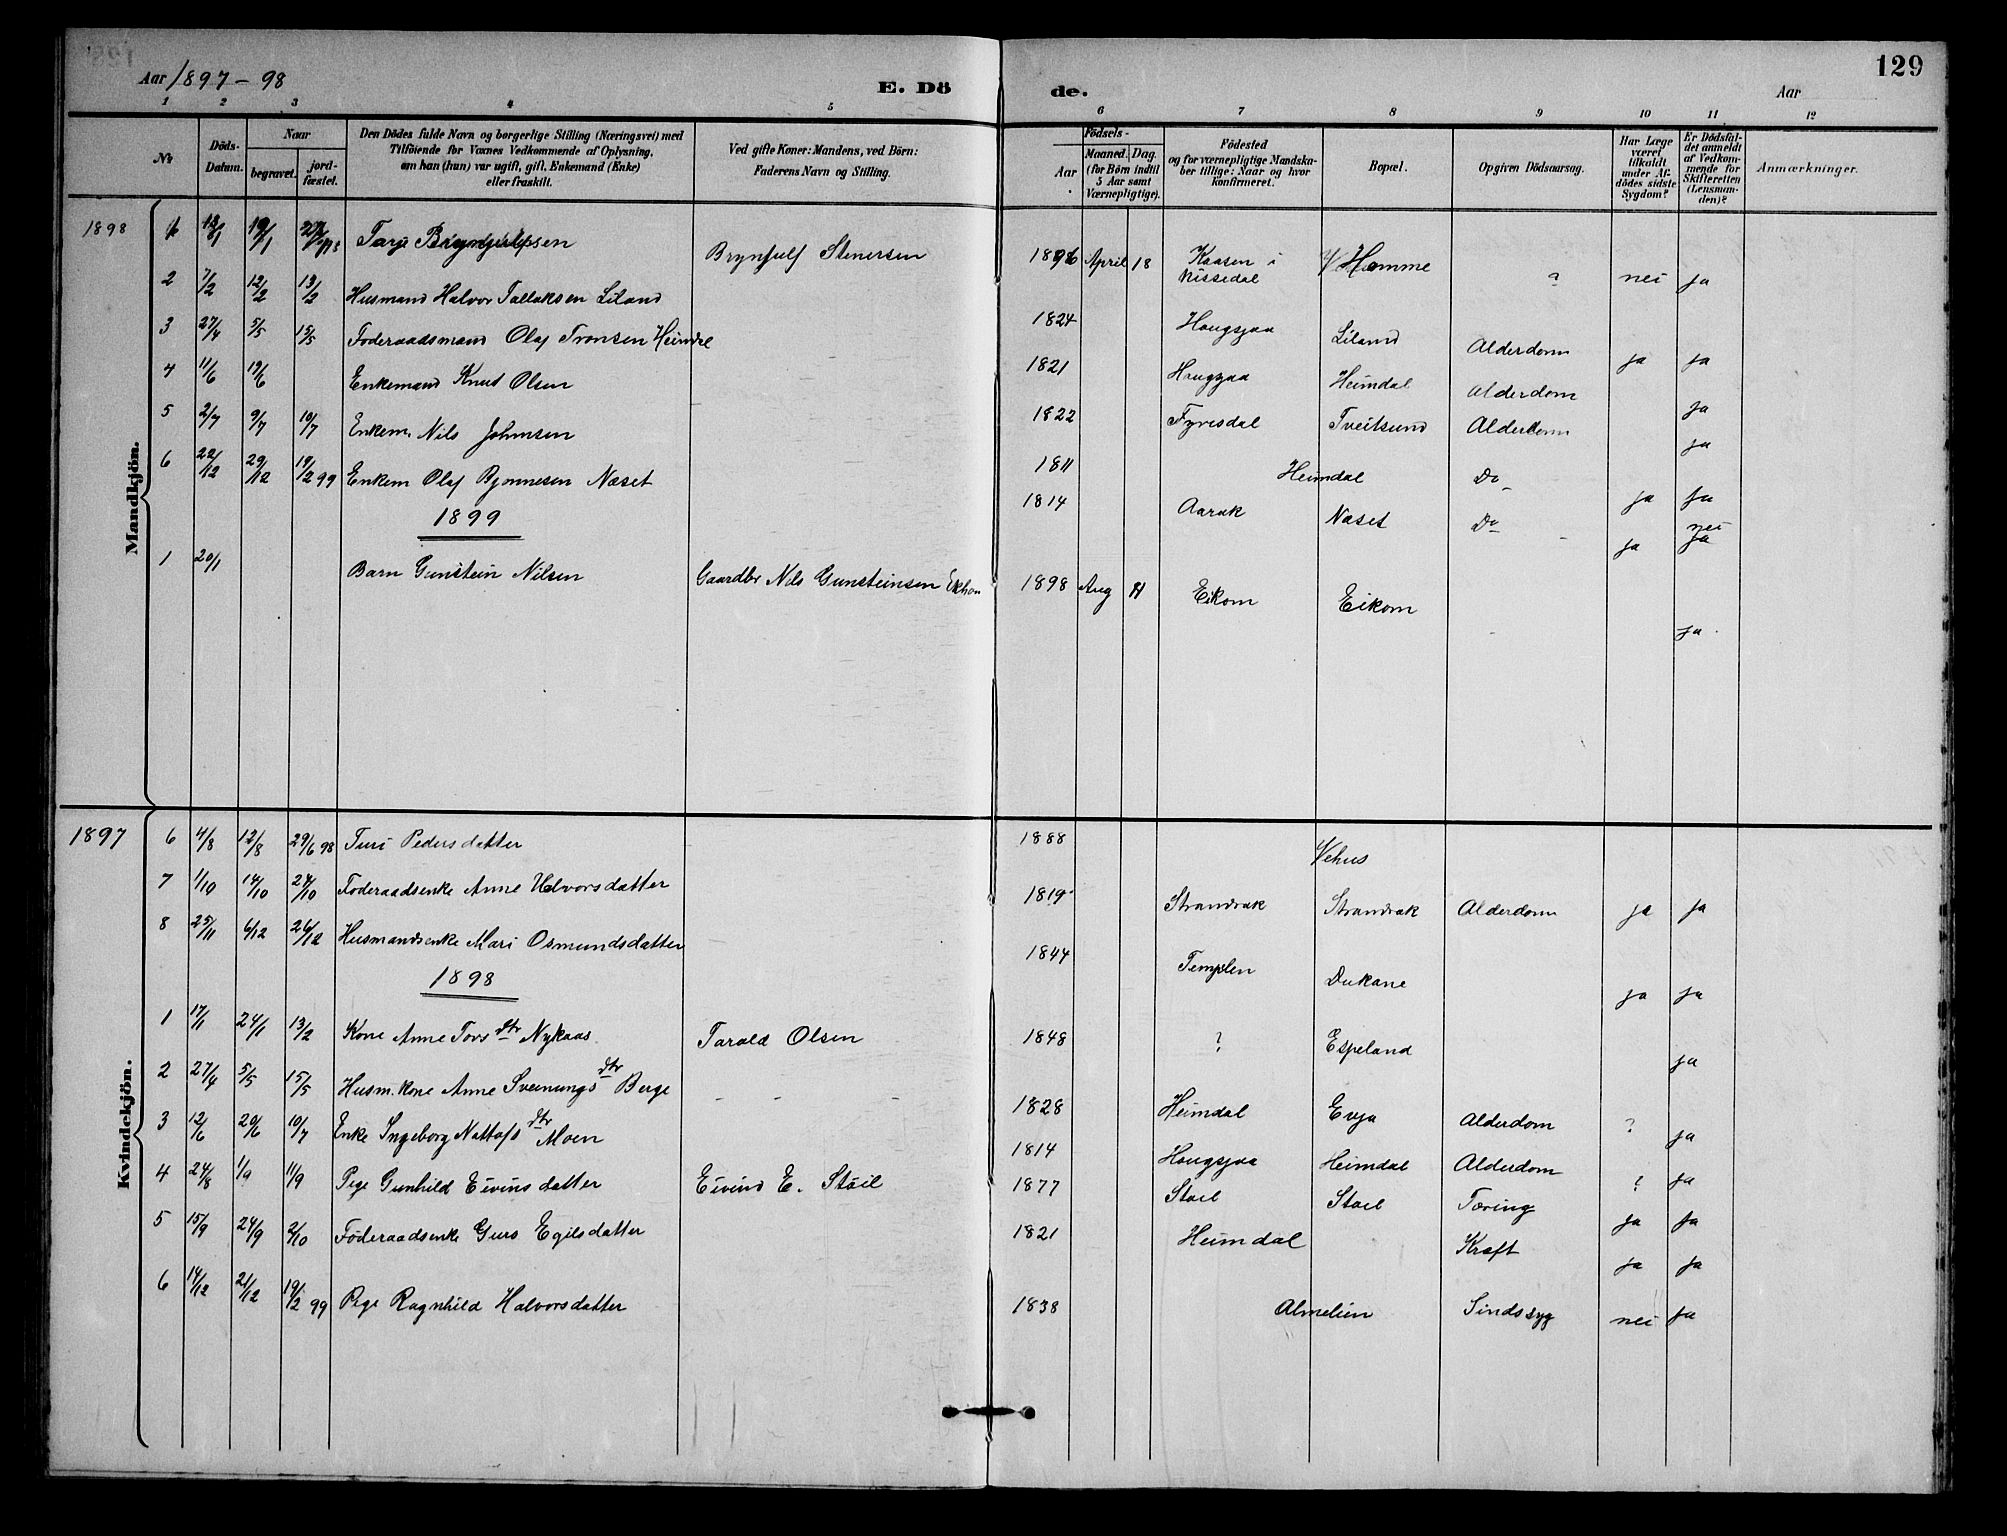 129
Aar 1897-98 E. Dö de. Aar
1 2 3 4 5 6 7 8 9 10 11 12
No
Döds-Datum.
Naar
begravet.
jord-fæstet.
Den Dödes fulde Navn og borgerlige Stilling (Næringsvei) med
Tilföiende for Voxnes Vedkommende af Oplysning,
om han (hun) var ugift, gift, Enkemand (Enke)
eller fraskilt.
Ved gifte Koner: Mandens, ved Börn:
Faderens Navn og Stilling.
Födsels-
Aar
Maaned. Dag.
(for Börn indtil
5 Aar samt
Værnepligtige).
Födested
og for værnepligtige Mandska-
ber tillige: Naar og hvor
konfirmeret.
Bopæl.
Opgiven Dödsaarsag.
Har Læge
været
tilkaldt
under Af-
dödes sidste
Sygdom?
Er Dödsfal-
det anmeldt
af Vedkom-
mende for
Skifteretten
(Lensman-
den)?
Anmærkninger.
Mandkjön.
1898 1 Brynjulfsen Brynjulf Stenersen April 18 Kaasen i Nissedal Homme ? nei ja
2 7/2 12/2 13/2 Husmand Halvor Tallaksen Liland 1824 Haugsjaa Liland Alderdom ja ja
3 27/4 5/5 15/5 Foderaadsmand Olaf Tronsen Heimdal 1821 Haugsjaa Heimdal Alderdom ja
4 11/6 19/6 Enkemand Knut Olsen 1822 Fyresdal Tveitsund Alderdom ja
5 2/7 9/7 10/7 Enkem. Nils Johnsen 1811 Heimdal Do ja ja
6 22/12 29/12 19/2 99 Enkem Olaf Bjonnesen Næset 1814 Aarak Næset Do ja nei ja
1899
1 20/1 Barn Gunstein Nilsen Gaardbr Nils Gunsteinsen 1898 Aug Eikom Eikom ja
Kvindekjön.
1897 6 4/8 12/8 29/6 98 Turi Pedersdatter 1888 Vehus
7 1/10 14/10 24/10 Foderaadsenke Anne Halvorsdatter 1819 Strandrak Strandrak Alderdom ja ja
8 25/11 6/12 26/12 Husmandsenke Mari Osmundsdatter 1844 Templen Dukane ja ja
1898
1 17/1 24/1 13/2 Kone Anne Tors dtr Nykaas Tarald Olsen 1848 ? Espeland ja
2 27/4 5/5 15/5 Husm.kone Anne Sveinungs dtr Berge - - - 1828 Heimdal Evja Alderdom ? ja
3 12/6 20/6 10/7 Enke Ingeborg dtr Moen 1814 Haugsjaa Heimdal Alderdom ? ja
4 24/8 1/9 11/9 Pige Gunhild Eivinsdatter Eivind E. Støil 1877 Støil Støil Tæring ja ja
5 15/9 24/9 2/10 Føderaadsenke Guro Egilsdatter 1821 Heimdal Kræft ja ja
6 14/12 21/12 19/2 99 Pige Ragnhild Halvorsdatter 1838 Almelien Sindssyg nei ja